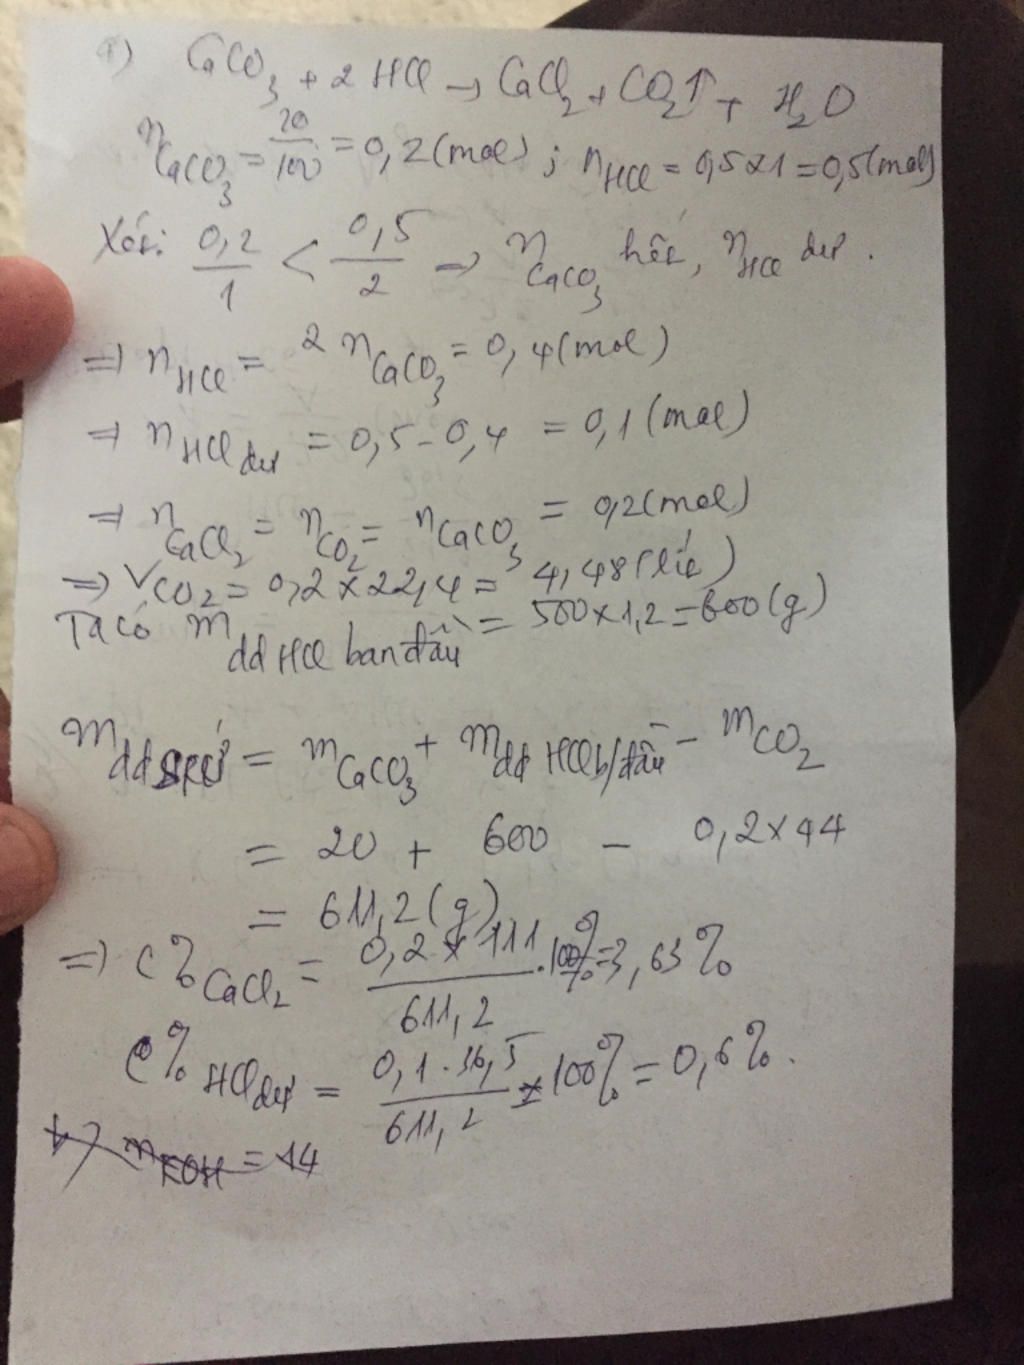 a) CaCO3 + 2 HCl → CaCl2 + CO2↑ + H2O
nCaCO3 = 20/100 = 0,2 (mol) ; nHCl = 0,5 x 1 = 0,5 (mol)
Xét: 0,2/1 < 0,5/2 => nCaCO3 hết, nHCl dư.
=> nHCl = 2 nCaCO3 = 0,4 (mol)
=> nHCl dư = 0,5 - 0,4 = 0,1 (mol)
=> nCaCl2 = nCO2 = nCaCO3 = 0,2 (mol)
=> VCO2 = 0,2 x 22,4 = 4,48 (lít)
Ta có mdd HCl ban đầu = 500 x 1,2 = 600 (g)
mdd SPỨ = mCaCO3 + mdd HCl b/đầu - mCO2
= 20 + 600 - 0,2 x 44
= 611,2 (g)
=> C% CaCl2 = 0,2 x 111 / 611,2 . 100% = 3,63%
C% HCl dư = 0,1 . 36,5 / 611,2 x 100% = 0,6%.
b) nKOH = 14